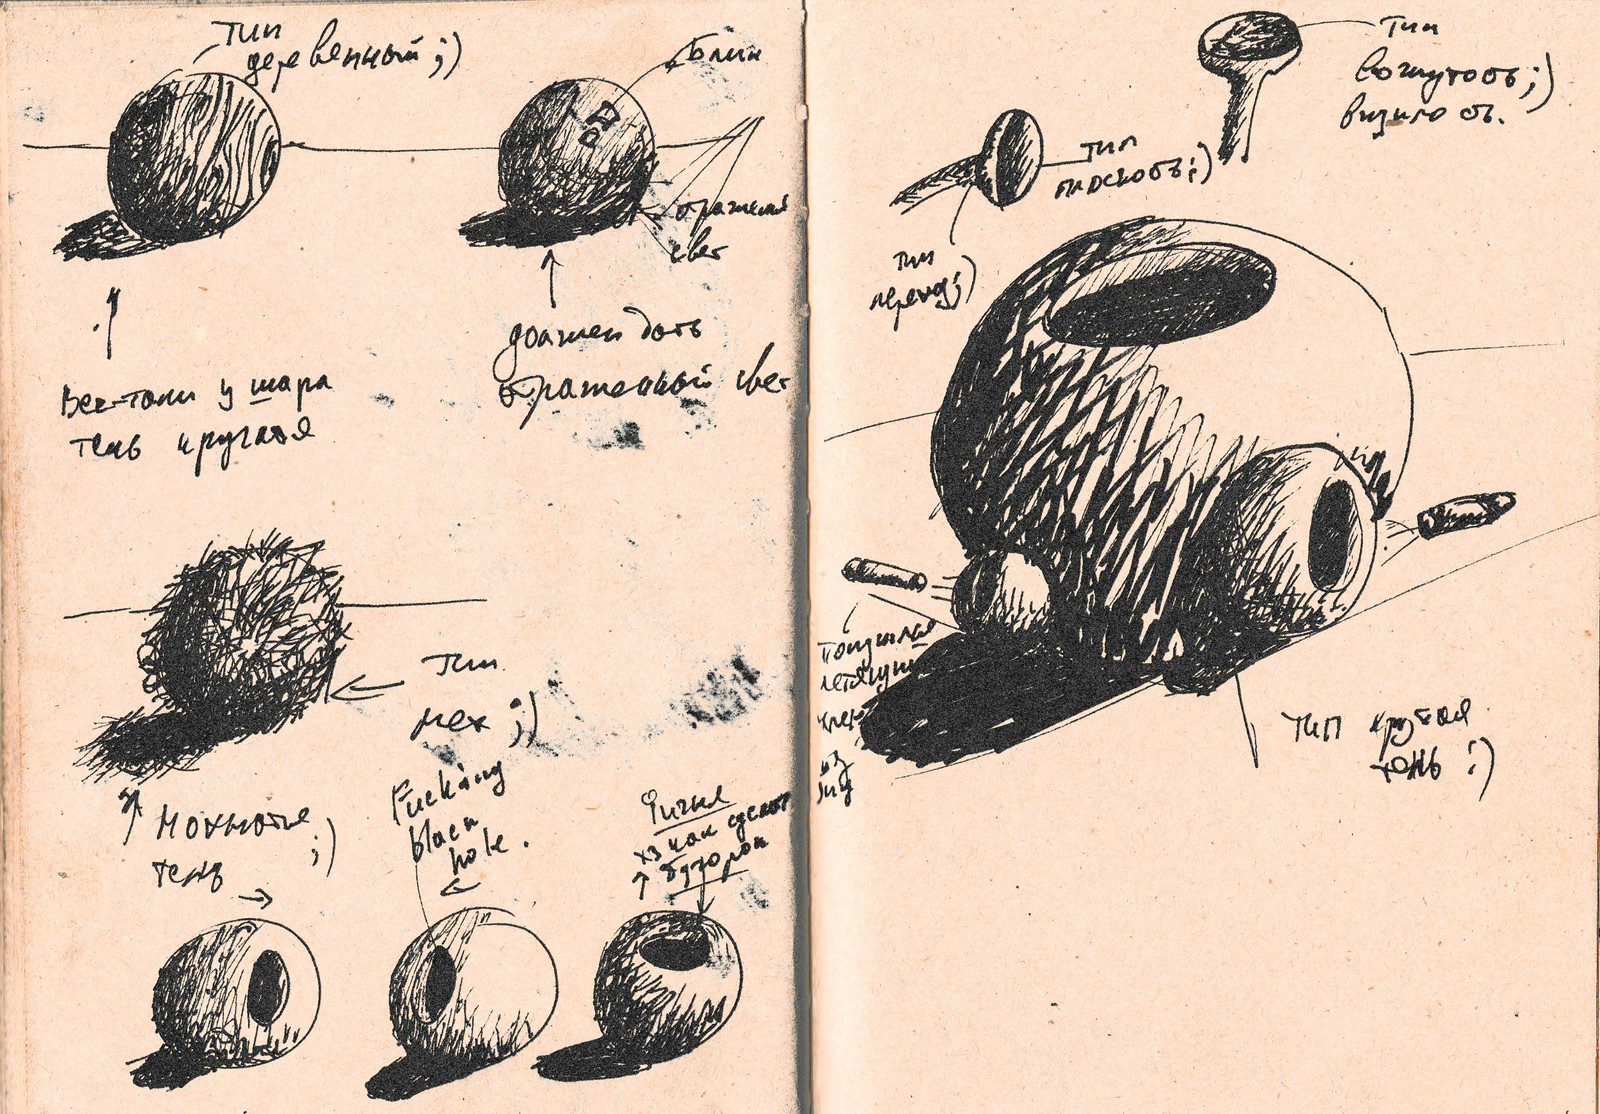 тип
деревянный ;)
блик
отражений
свет
Все-таки у шара
тень круглая
должен дать
отраженный свет
тип
мех ;)
Мохнатая
тень ;)
Fucking
black
hole.
хз как сделать
тип
вогнутость ;)
тип
плоскость ;)
тип
переход ;)
летящий
из
тип круглая
тень :)